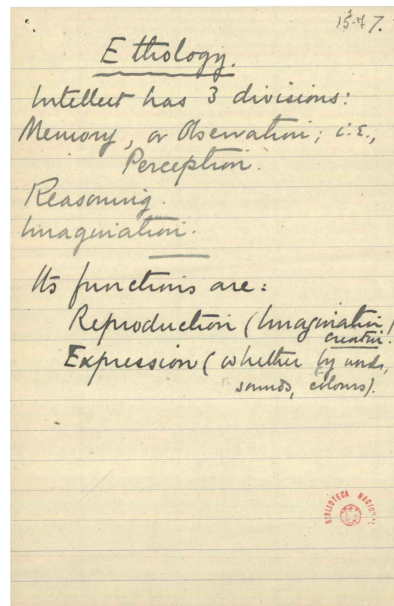 15-47.
Ethology.
Intellect has 3 divisions:
Memory, or Observation; i.e.,
Perception.
Reasoning.
Imagination.
Its functions are:
Reproduction (Imagination)
creation.
Expression (whether by words,
sounds, colours).
BIBLIOTECA NACIONAL